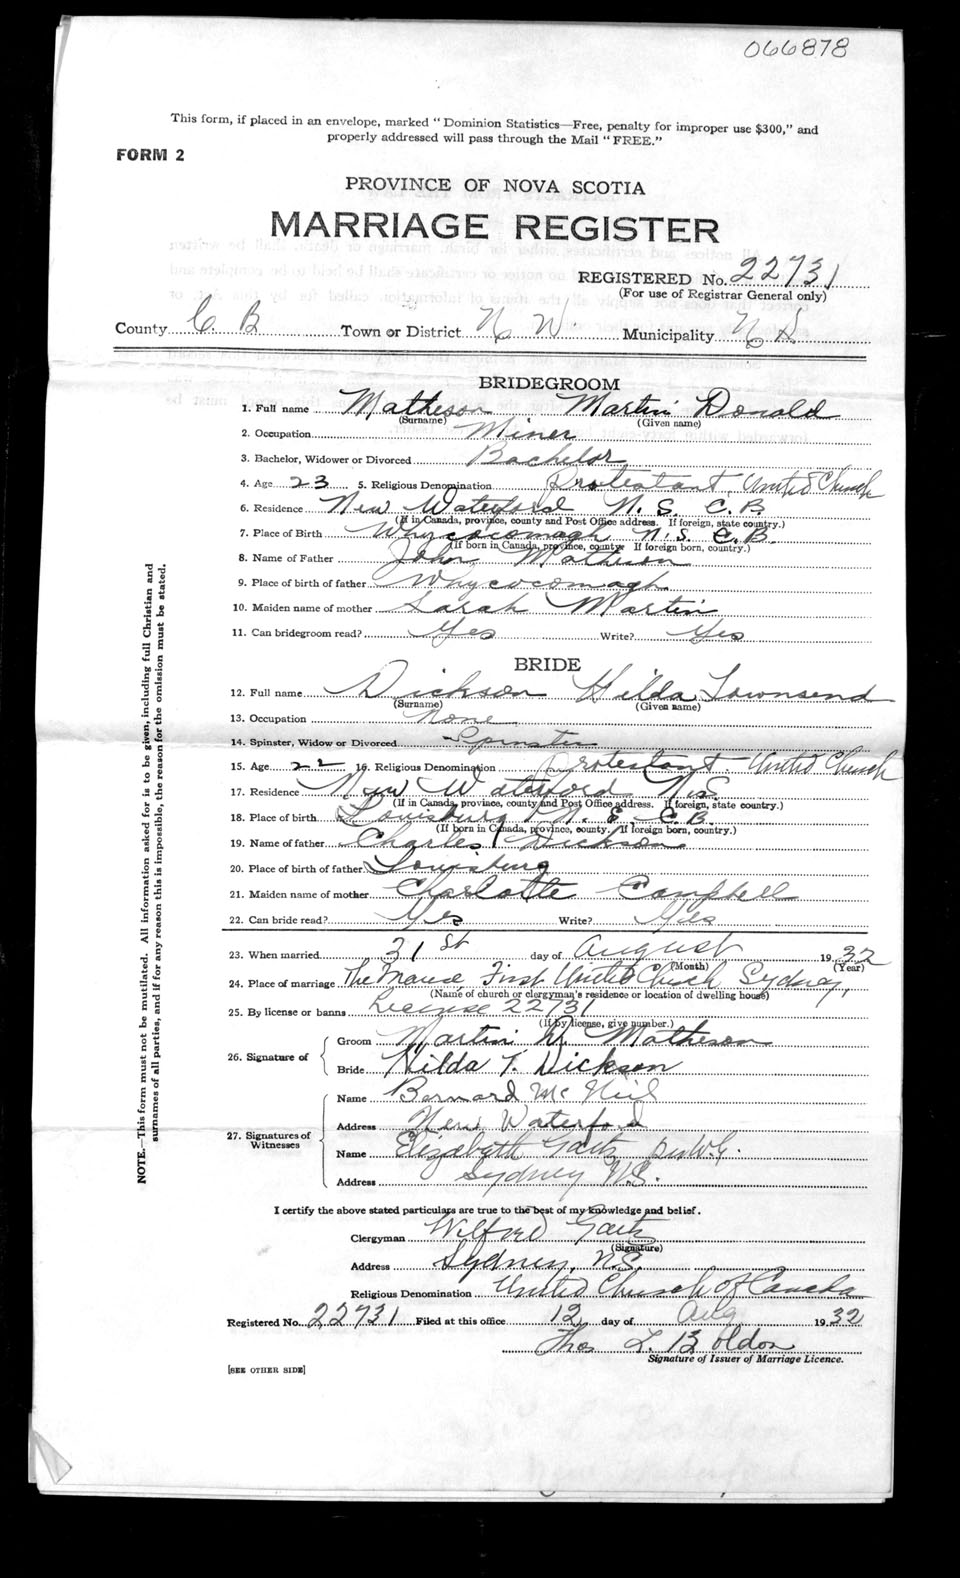 066878
This form, if placed in an envelope, marked "Dominion Statistics—Free, penalty for improper use $300," and
properly addressed will pass through the Mail "FREE."
FORM 2
PROVINCE OF NOVA SCOTIA
MARRIAGE REGISTER
REGISTERED No. 22731
(For use of Registrar General only)
County C. B Town or District N W. Municipality N S
BRIDEGROOM
1. Full name Matheson Martin Donald
(Surname) (Given name)
2. Occupation Miner
3. Bachelor, Widower or Divorced Bachelor
4. Age 23 5. Religious Denomination Protestant, United Church
6. Residence New Waterford N. S. C. B
(If in Canada, province, county and Post Office address. If foreign, state country.)
7. Place of Birth Whycocomagh N. S. C. B.
(If born in Canada, province, county. If foreign born, country.)
8. Name of Father John Matheson
9. Place of birth of father Whycocomagh
10. Maiden name of mother Sarah Martin
11. Can bridegroom read? Yes Write? Yes
BRIDE
12. Full name Dickson Hilda Townsend
(Surname) (Given name)
13. Occupation None
14. Spinster, Widow or Divorced Spinster
15. Age 22 16. Religious Denomination Protestant United Church
17. Residence New Waterford N.S.
(If in Canada, province, county and Post Office address. If foreign, state country.)
18. Place of birth Louisburg N. S. C.B.
(If born in Canada, province, county. If foreign born, country.)
19. Name of father Charles Dickson
20. Place of birth of father Louisburg
21. Maiden name of mother Charlotte Campbell
22. Can bride read? Yes Write? Yes
23. When married 31st day of August 1932
(Month) (Year)
24. Place of marriage The Manse First United Church Sydney,
(Name of church or clergyman's residence or location of dwelling house)
25. By license or banns License 22731
(If by license, give number.)
26. Signature of
Groom Martin D Matheson
Bride Hilda T. Dickson
27. Signatures of Witnesses
Name Bernard McNeil
Address New Waterford
Name Elizabeth Gaetz per W.G.
Address Sydney N.S.
I certify the above stated particulars are true to the best of my knowledge and belief.
Clergyman Wilfred Gaetz
(Signature)
Address Sydney, N.S.
Religious Denomination United Church of Canada
Registered No. 22731 Filed at this office 12 day of Aug 1932
Thos L. Boldon
Signature of Issuer of Marriage Licence.
[SEE OTHER SIDE]
NOTE.—This form must not be mutilated. All information asked for is to be given, including full Christian and
surnames of all parties, and if for any reason this is impossible, the reason for the omission must be stated.